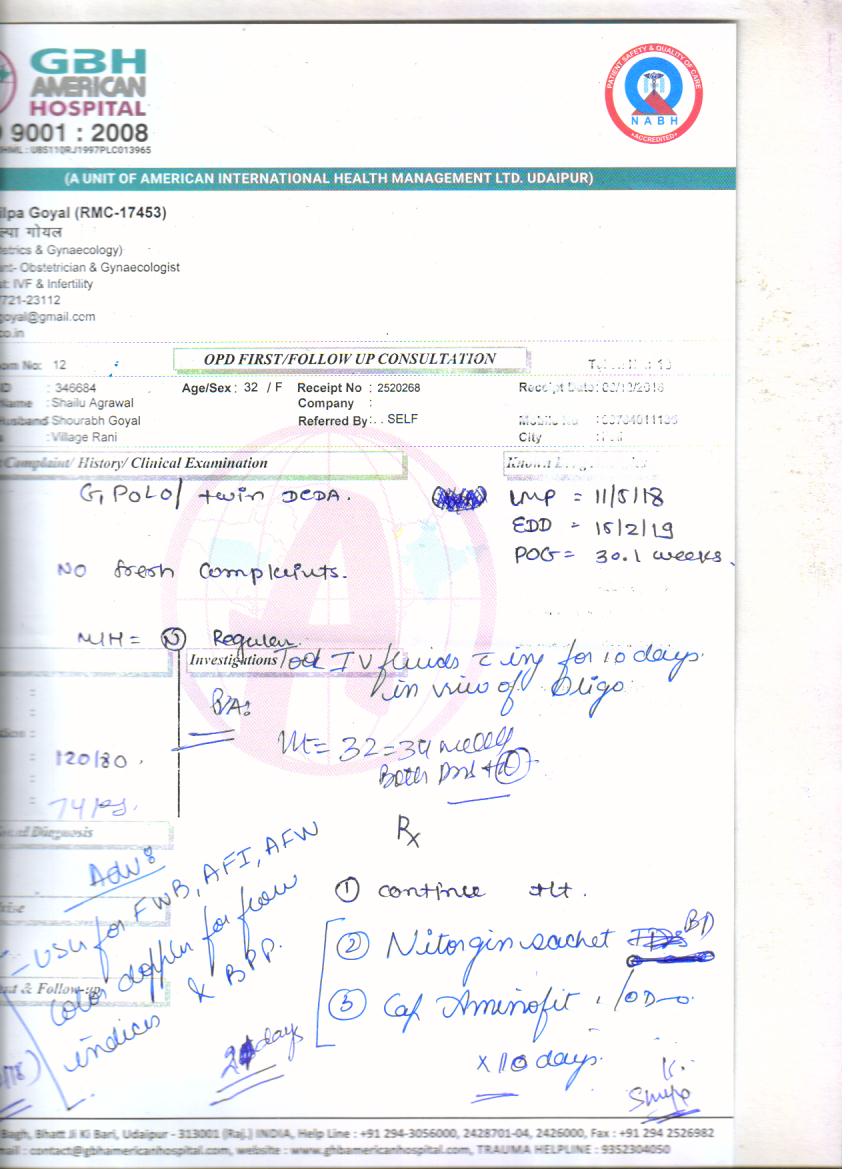 GBH
AMERICAN
HOSPITAL
9001 : 2008
U85110RJ1997PLC013965
PATIENT SAFETY & QUALITY OF CARE
NABH
ACCREDITED
(A UNIT OF AMERICAN INTERNATIONAL HEALTH MANAGEMENT LTD. UDAIPUR)
ilpa Goyal (RMC-17453)
ल्पा गोयल
etrics & Gynaecology)
ant- Obstetrician & Gynaecologist
st: IVF & Infertility
721-23112
goyal@gmail.com
co.in
OPD FIRST/FOLLOW UP CONSULTATION
om No: 12
ID : 346684 Age/Sex : 32 / F Receipt No : 2520268 Receipt Date:
Name : Shailu Agrawal Company :
Husband Shourabh Goyal Referred By: . SELF Mobile No
: Village Rani City :
Complaint/ History/ Clinical Examination
G1 P0L0/ twin DCDA. LMP = 11/5/18
EDD = 15/2/19
POG = 30.1 weeks.
NO fresh complaints.
M/H = N Regular.
Investigations Took IV fluids for 10 days
in view of Oligo.
P/A:
Ut = 32-34 weeks
Both
120/80.
74 kg.
Diagnosis
Rx
Adv:
- USG for FWB, AFI, AFW
color doppler for flow
indices & BPP.
& Follow-up
① continue ttt.
② Nitorgin sachet BD
③ Cap Aminofit 1 OD
x 10 days.
days
Bagh, Bhatt Ji Ki Bari, Udaipur - 313001 (Raj.) INDIA, Help Line : +91 294-3056000, 2428701-04, 2426000, Fax : +91 294 2526982
mail : contact@gbhamericanhospital.com, website : www.ghbamericanhospital.com, TRAUMA HELPLINE : 9352304050